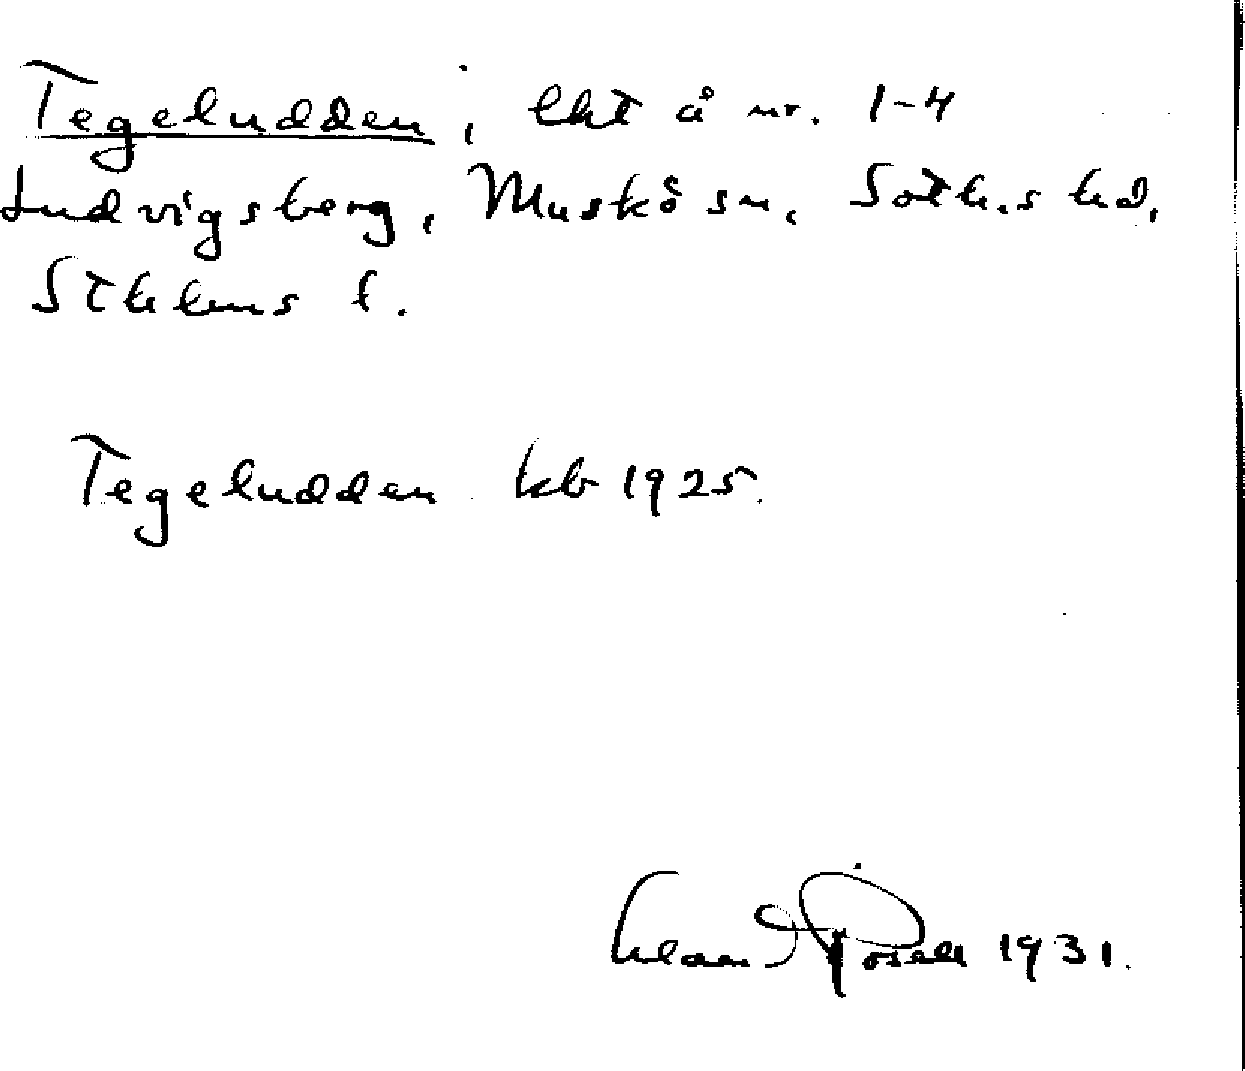 Tegeludden, lht å nr. 1-4
Ludvigsberg, Muskö sn, Soth.s hd,
Sthlms l.
Tegeludden kb 1925.
1931.